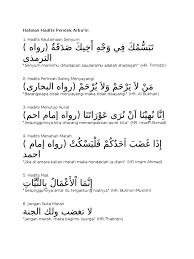 Hafalan Hadits Pendek Arba'in
1. Hadits Keutamaan Senyum
تَبَسُّمُكَ فِي وَجْهِ أَخِيكَ صَدَقَةٌ (رواه
الترمذي)
"Senyum manismu dihadapan saudaramu adalah shadaqah" (HR. Tirmidzi)
2. Hadits Perintah Saling Menyayangi
مَنْ لَا يَرْحَمْ وَلَا يُرْحَمْ (رواه البخاري)
"Barangsiapa tidak menyayangi maka tidak disayangi" (HR. Al Bukhari)
3. Hadits Menutup Aurat
إِنَّا نُهِينَا أَنْ تُرَى عَوْرَاتُنَا (رواه إمام احمد)
4. Hadits Menahan Marah
إِذَا غَضِبَ أَحَدُكُمْ فَلْيَسْكُتْ (رواه إمام
احمد)
"Jika di antara kalian marah maka hendaklah ia diam" (HR Imam Ahmad)
5. Hadits Niat
إِنَّمَا الْأَعْمَالُ بِالنِّيَّاتِ
"Sesungguhnya amal itu tergantung niatnya" (HR. Bukhari-Muslim)
6. Jangan Suka Marah
لا تغضب ولك الجنة
"Jangan marah, maka bagimu syurga" (HR.Thabrani)